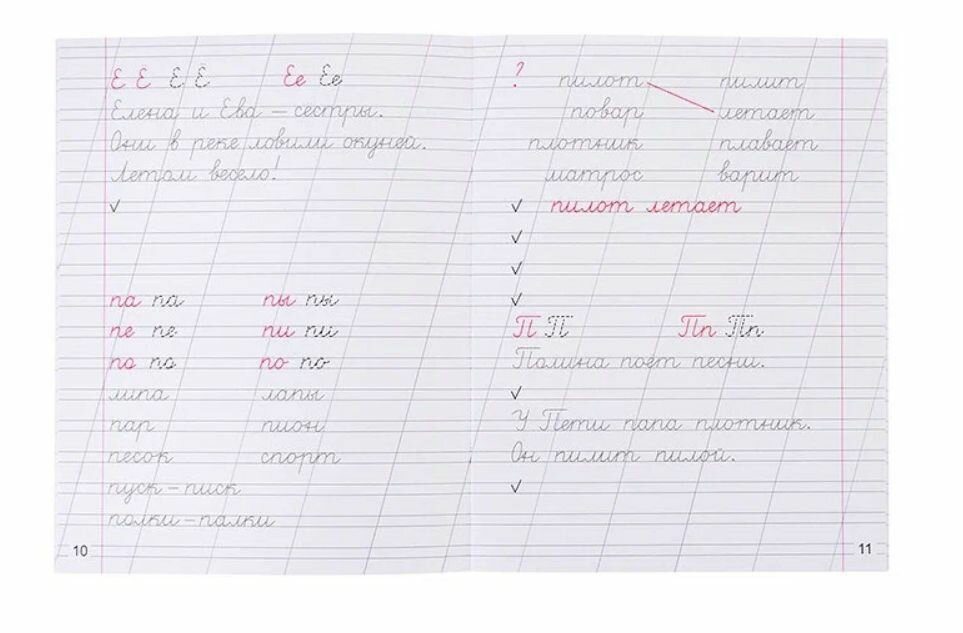 Е Е Е Е Ее Ее
Елена и Ева – сестры.
Они в реке ловили окуней.
Летом весело!
✓
па па пы пы
пе пе пи пи
по по по по
липа лапы
пар пион
песок спорт
пуск – писк
полки – палки
10
? пилот пилит
повар летает
плотник плавает
матрос варит
✓ пилот летает
✓
✓
✓
П П Пп Пп
Полина поёт песни.
✓
У Пети папа плотник.
Он пилит пилой.
✓
11